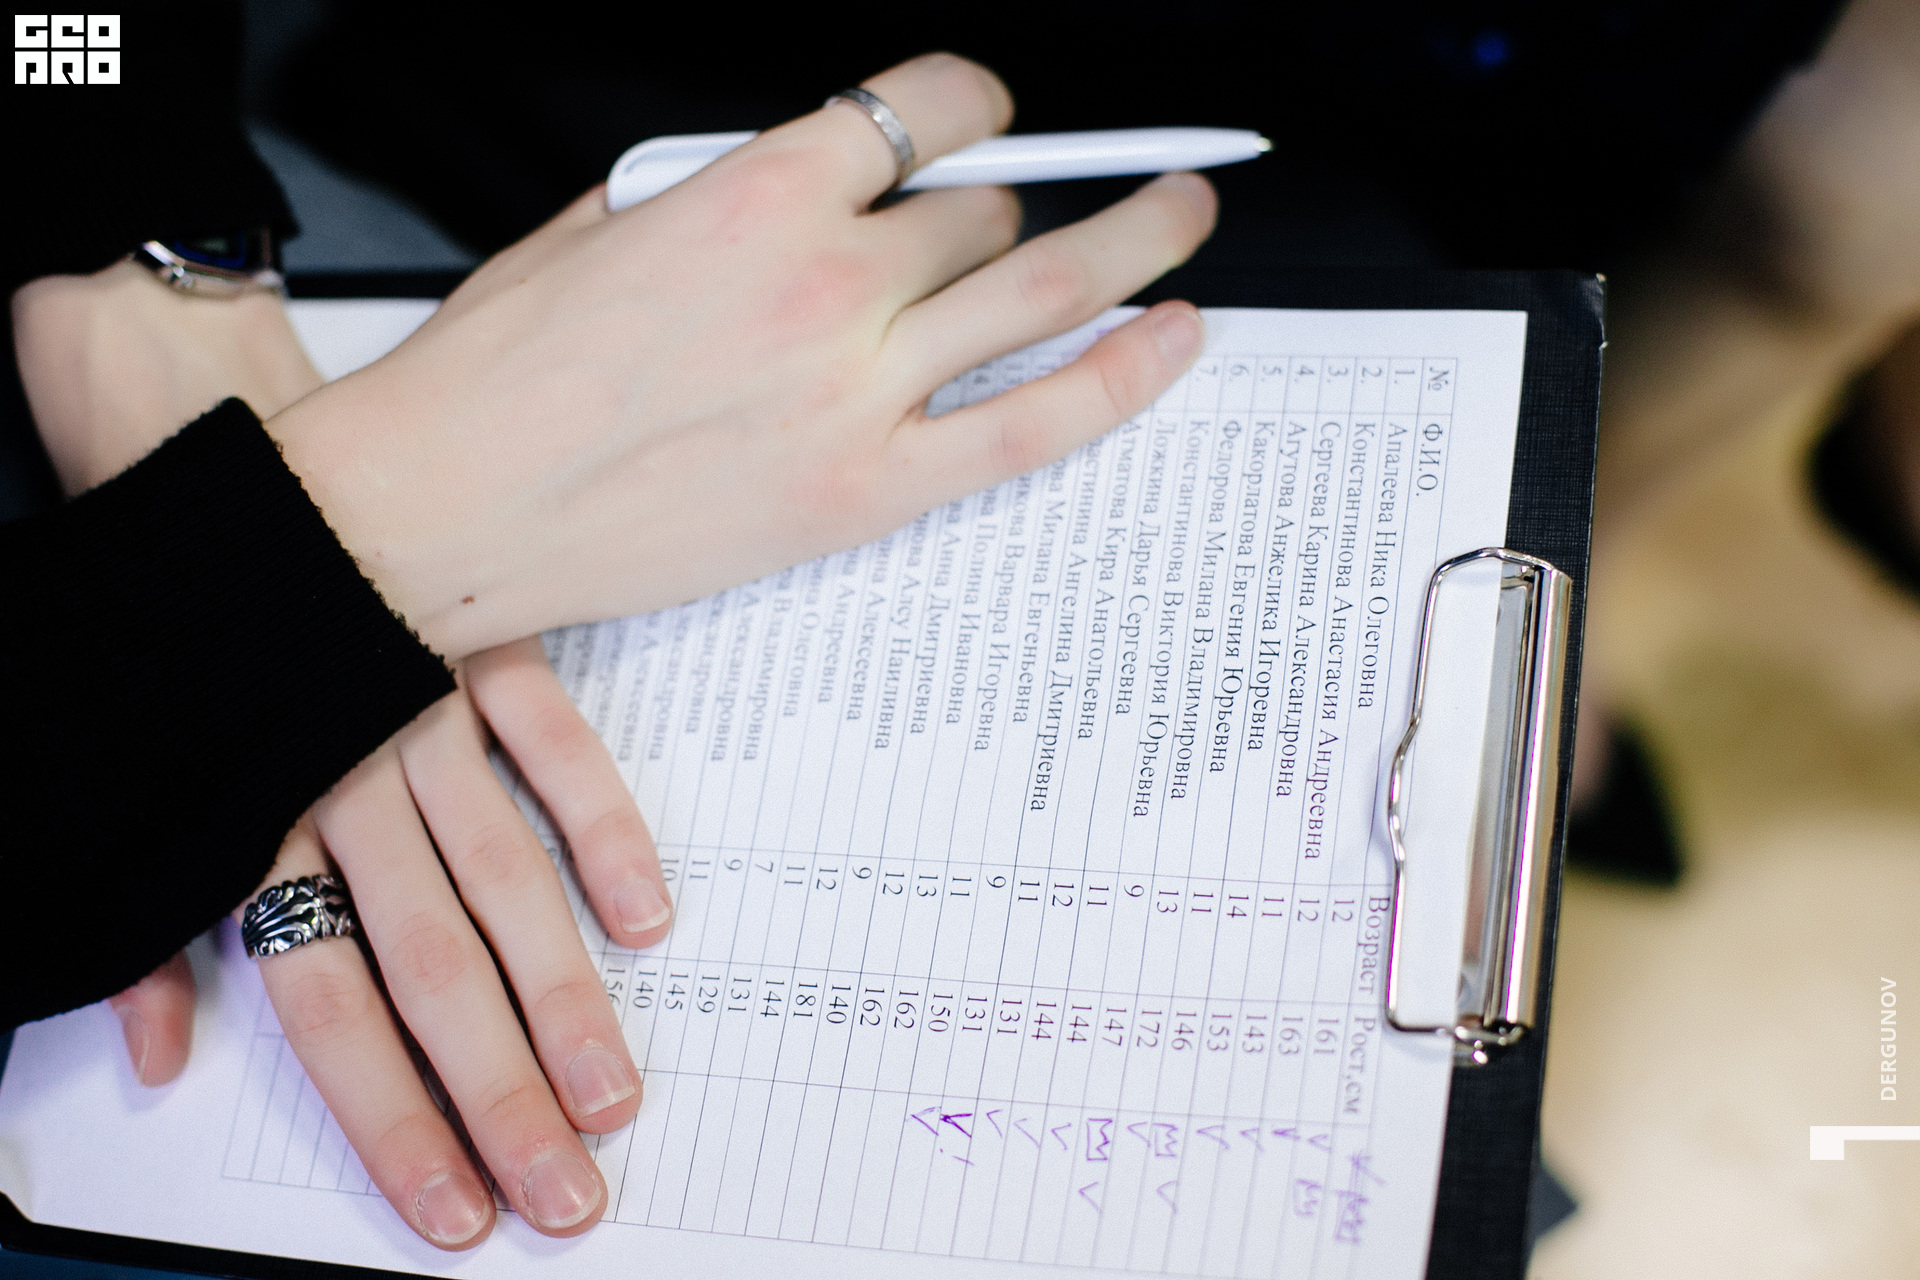 GEO
PRO
№ Ф.И.О. Возраст Рост,см
1. Апалеева Ника Олеговна 12 161
2. Константинова Анастасия Андреевна 12 163
3. Сергеева Карина Александровна 11 143
4. Агутова Анжелика Игоревна 14 153
5. Какорлатова Евгения Юрьевна 11 146
6. Федорова Милана Владимировна 13 172
7. Константинова Виктория Юрьевна 9 147
Ложкина Дарья Сергеевна 11 144
Агматова Кира Анатольевна 12 144
Ангелина Дмитриевна 11 131
Милана Евгеньевна 9 131
Варвара Игоревна 11 150
Полина Ивановна 13 162
Анна Дмитриевна 12 162
Алсу Наиливна 9 140
Алексеевна 12 181
Андреевна 11 144
Олеговна 7 131
Владимировна 9 129
Александровна 11 145
10 140
156
DERGUNOV